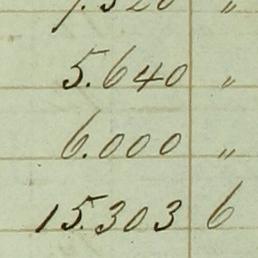 5.640 "
6.000 "
15.303 6